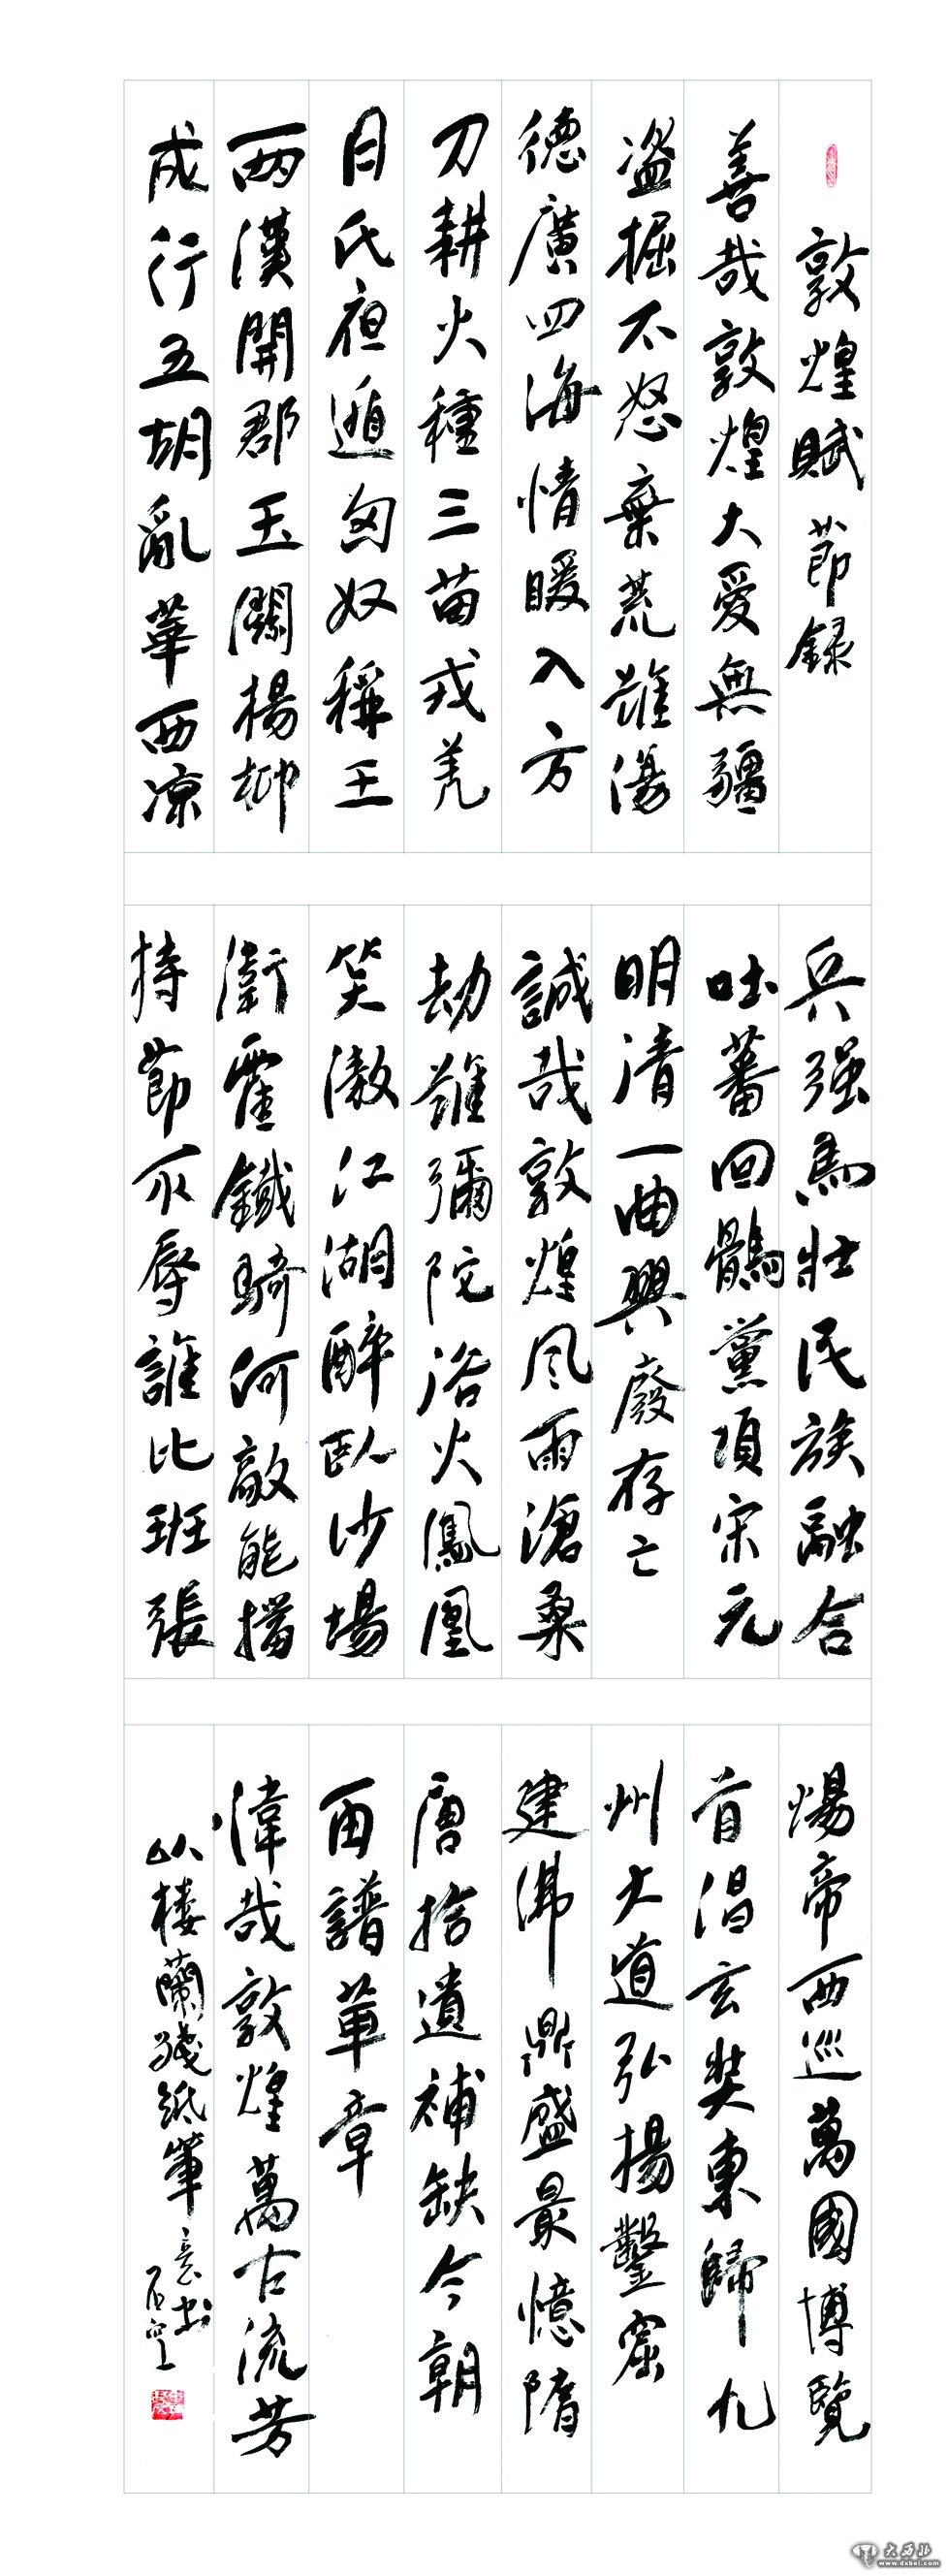 敦煌賦 節録
善哉敦煌大爱無疆
盗掘不怒棄荒雖傷
德廣四海情暖八方
刀耕火種三苗戎羌
月氏夜遁匈奴稱王
兩漢開郡玉關楊柳
成行五胡亂華西凉
兵强馬壯民族融合
吐蕃回鶻黨項宋元
明清一曲興廢存亡
誠哉敦煌風雨滄桑
劫難彌陀浴火鳳凰
笑傲江湖醉臥沙場
衛霍鐵騎何敵能擋
持節不辱誰比班張
煬帝西巡萬國博覽
首倡玄奘東歸九
州大道弘揚鑿窟
建佛鼎盛最憶隋
唐拾遺補缺今朝
再譜華章
偉哉敦煌萬古流芳
以楼蘭殘紙筆意书
大西北
www.dxbei.com